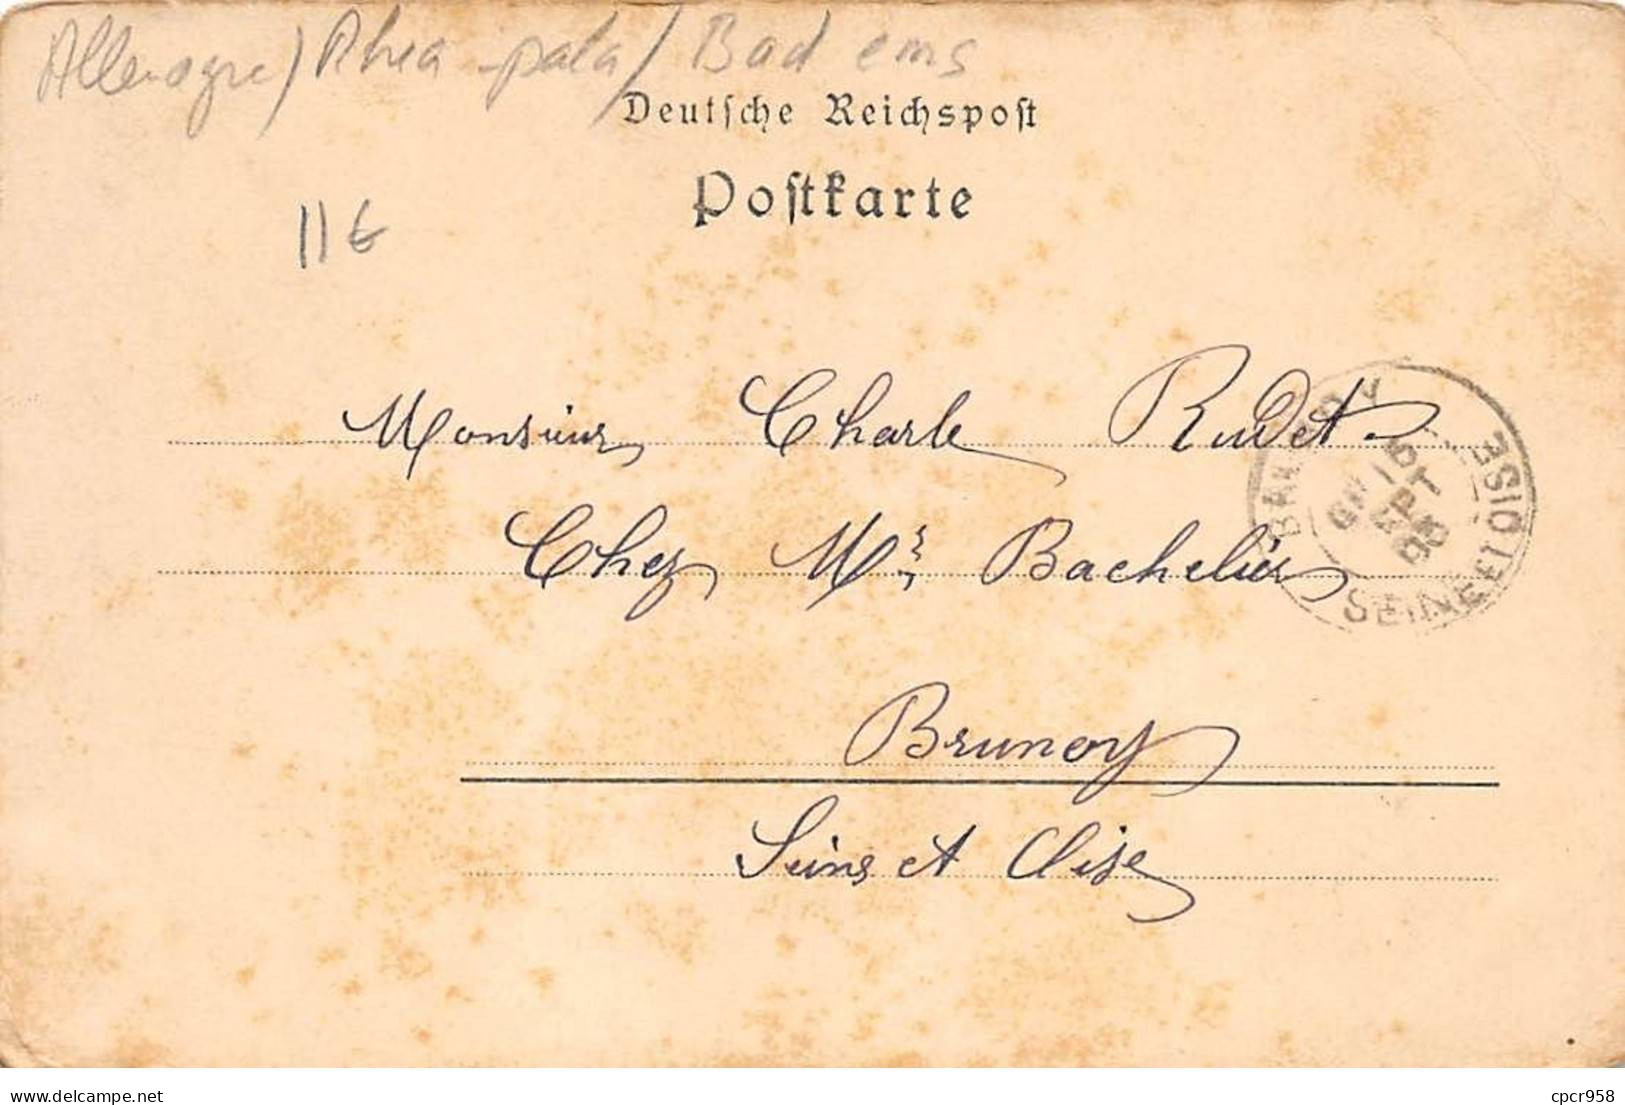 Allemagne / Rhea - pala / Bad ems
Deutsche Reichspost
Postkarte
11€
Monsieur Charle Rudet
Chez Mr Bachelier
Brunoy
Seine et Oise
SEINE ET OISE
delcampe.net
cpcr958